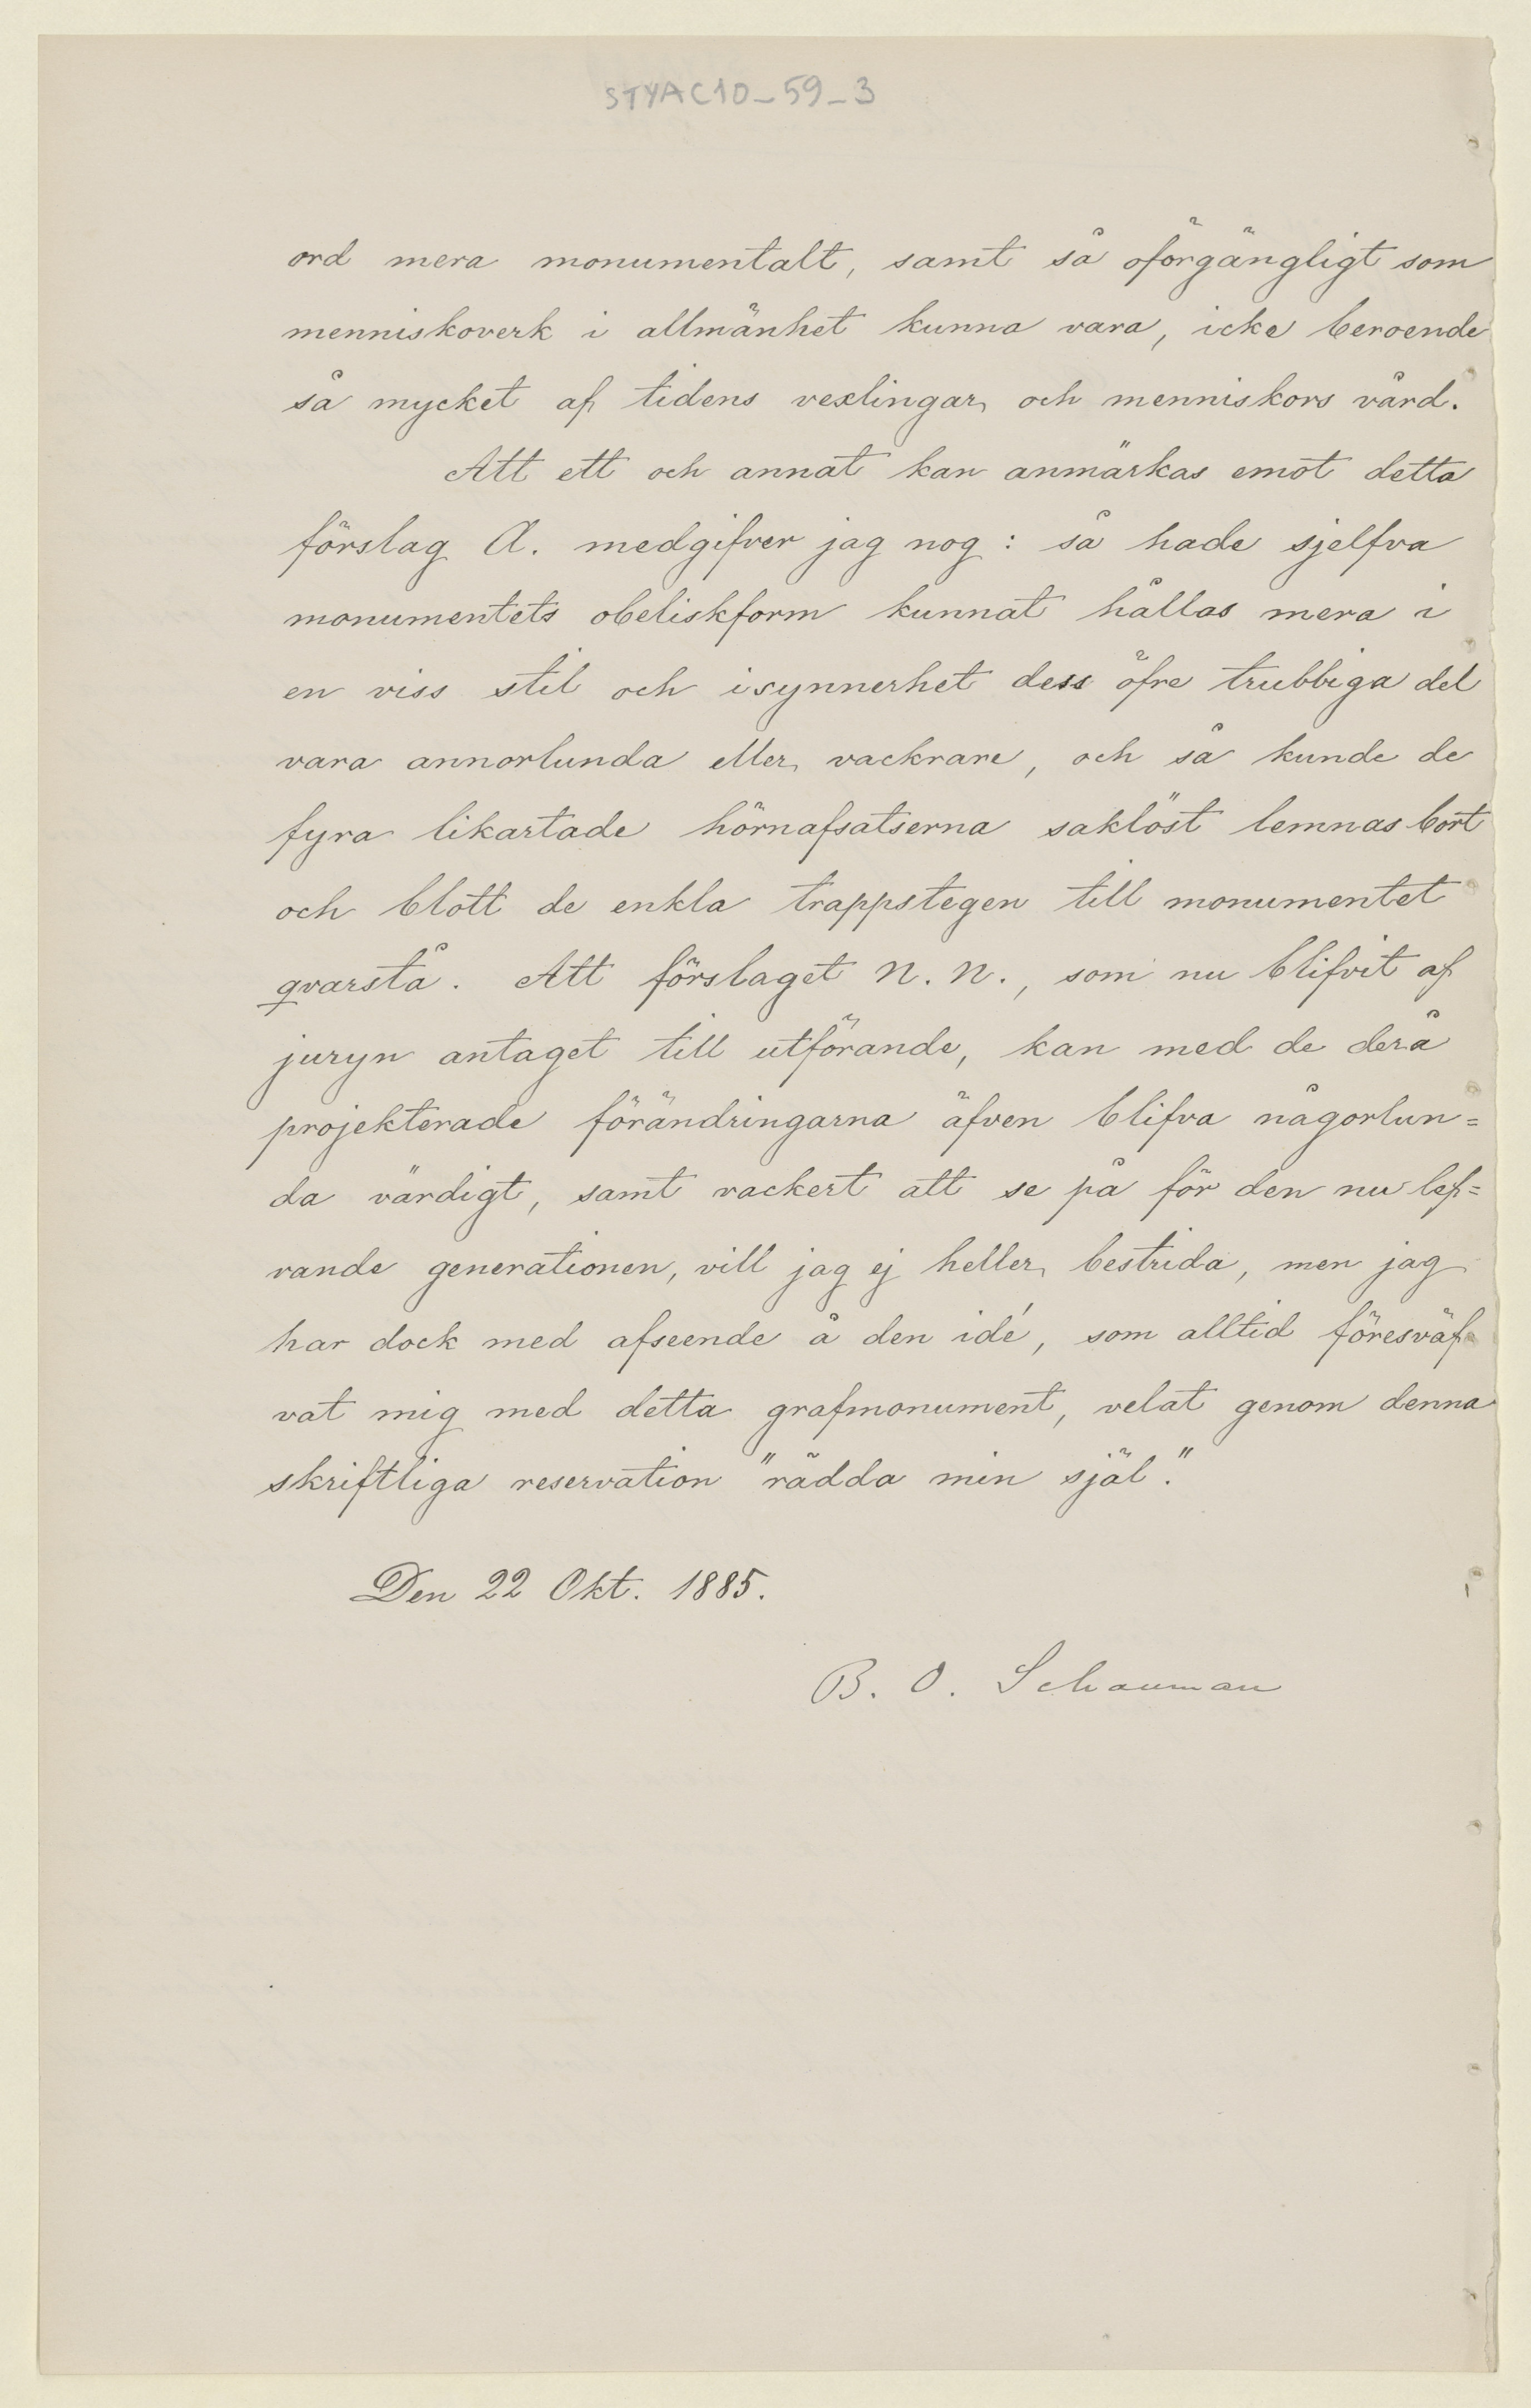 STYAC10_59_3
ord mera monumentalt, samt så oförgängligt som
menniskoverk i allmänhet kunna vara, icke beroende
så mycket af tidens vexlingar och menniskors vård.
Att ett och annat kan anmärkas emot detta
förslag A. medgifver jag nog: så hade sjelfva
monumentets obeliskform kunnat hållas mera i
en viss stil och isynnerhet dess öfre trubbiga del
vara annorlunda eller vackrare, och så kunde de
fyra likartade hörnafsatserna saklöst lemnas bort
och blott de enkla trappstegen till monumentet
qvarstå. Att förslaget N. N., som nu blifvit af
juryn antaget till utförande, kan med de derå
projekterade förändringarna äfven blifva någorlun=
da värdigt, samt vackert att se på för den nu lef=
vande generationen, vill jag ej heller bestrida, men jag
har dock med afseende å den idé, som alltid föresväf
vat mig med detta grafmonument, velat genom denna
skriftliga reservation "rädda min själ".
Den 22 Okt. 1885.
B. O. Schauman